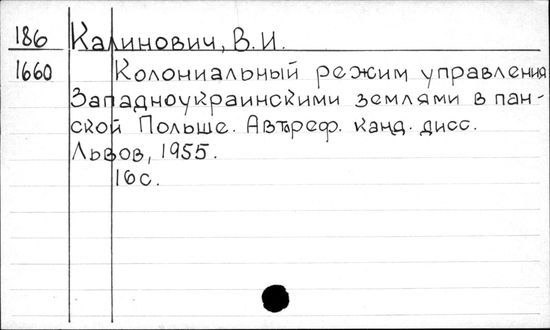 186 Калинович, В.И.
1660 Колониальный режим управления
Западноукраинскими землями в пан-
ской Польше. Автореф. канд. дисс.
Львов, 1955.
16с.